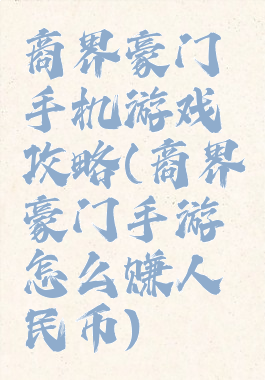 商界豪门
手机游戏
攻略(商界
豪门手游
怎么赚人
民币)